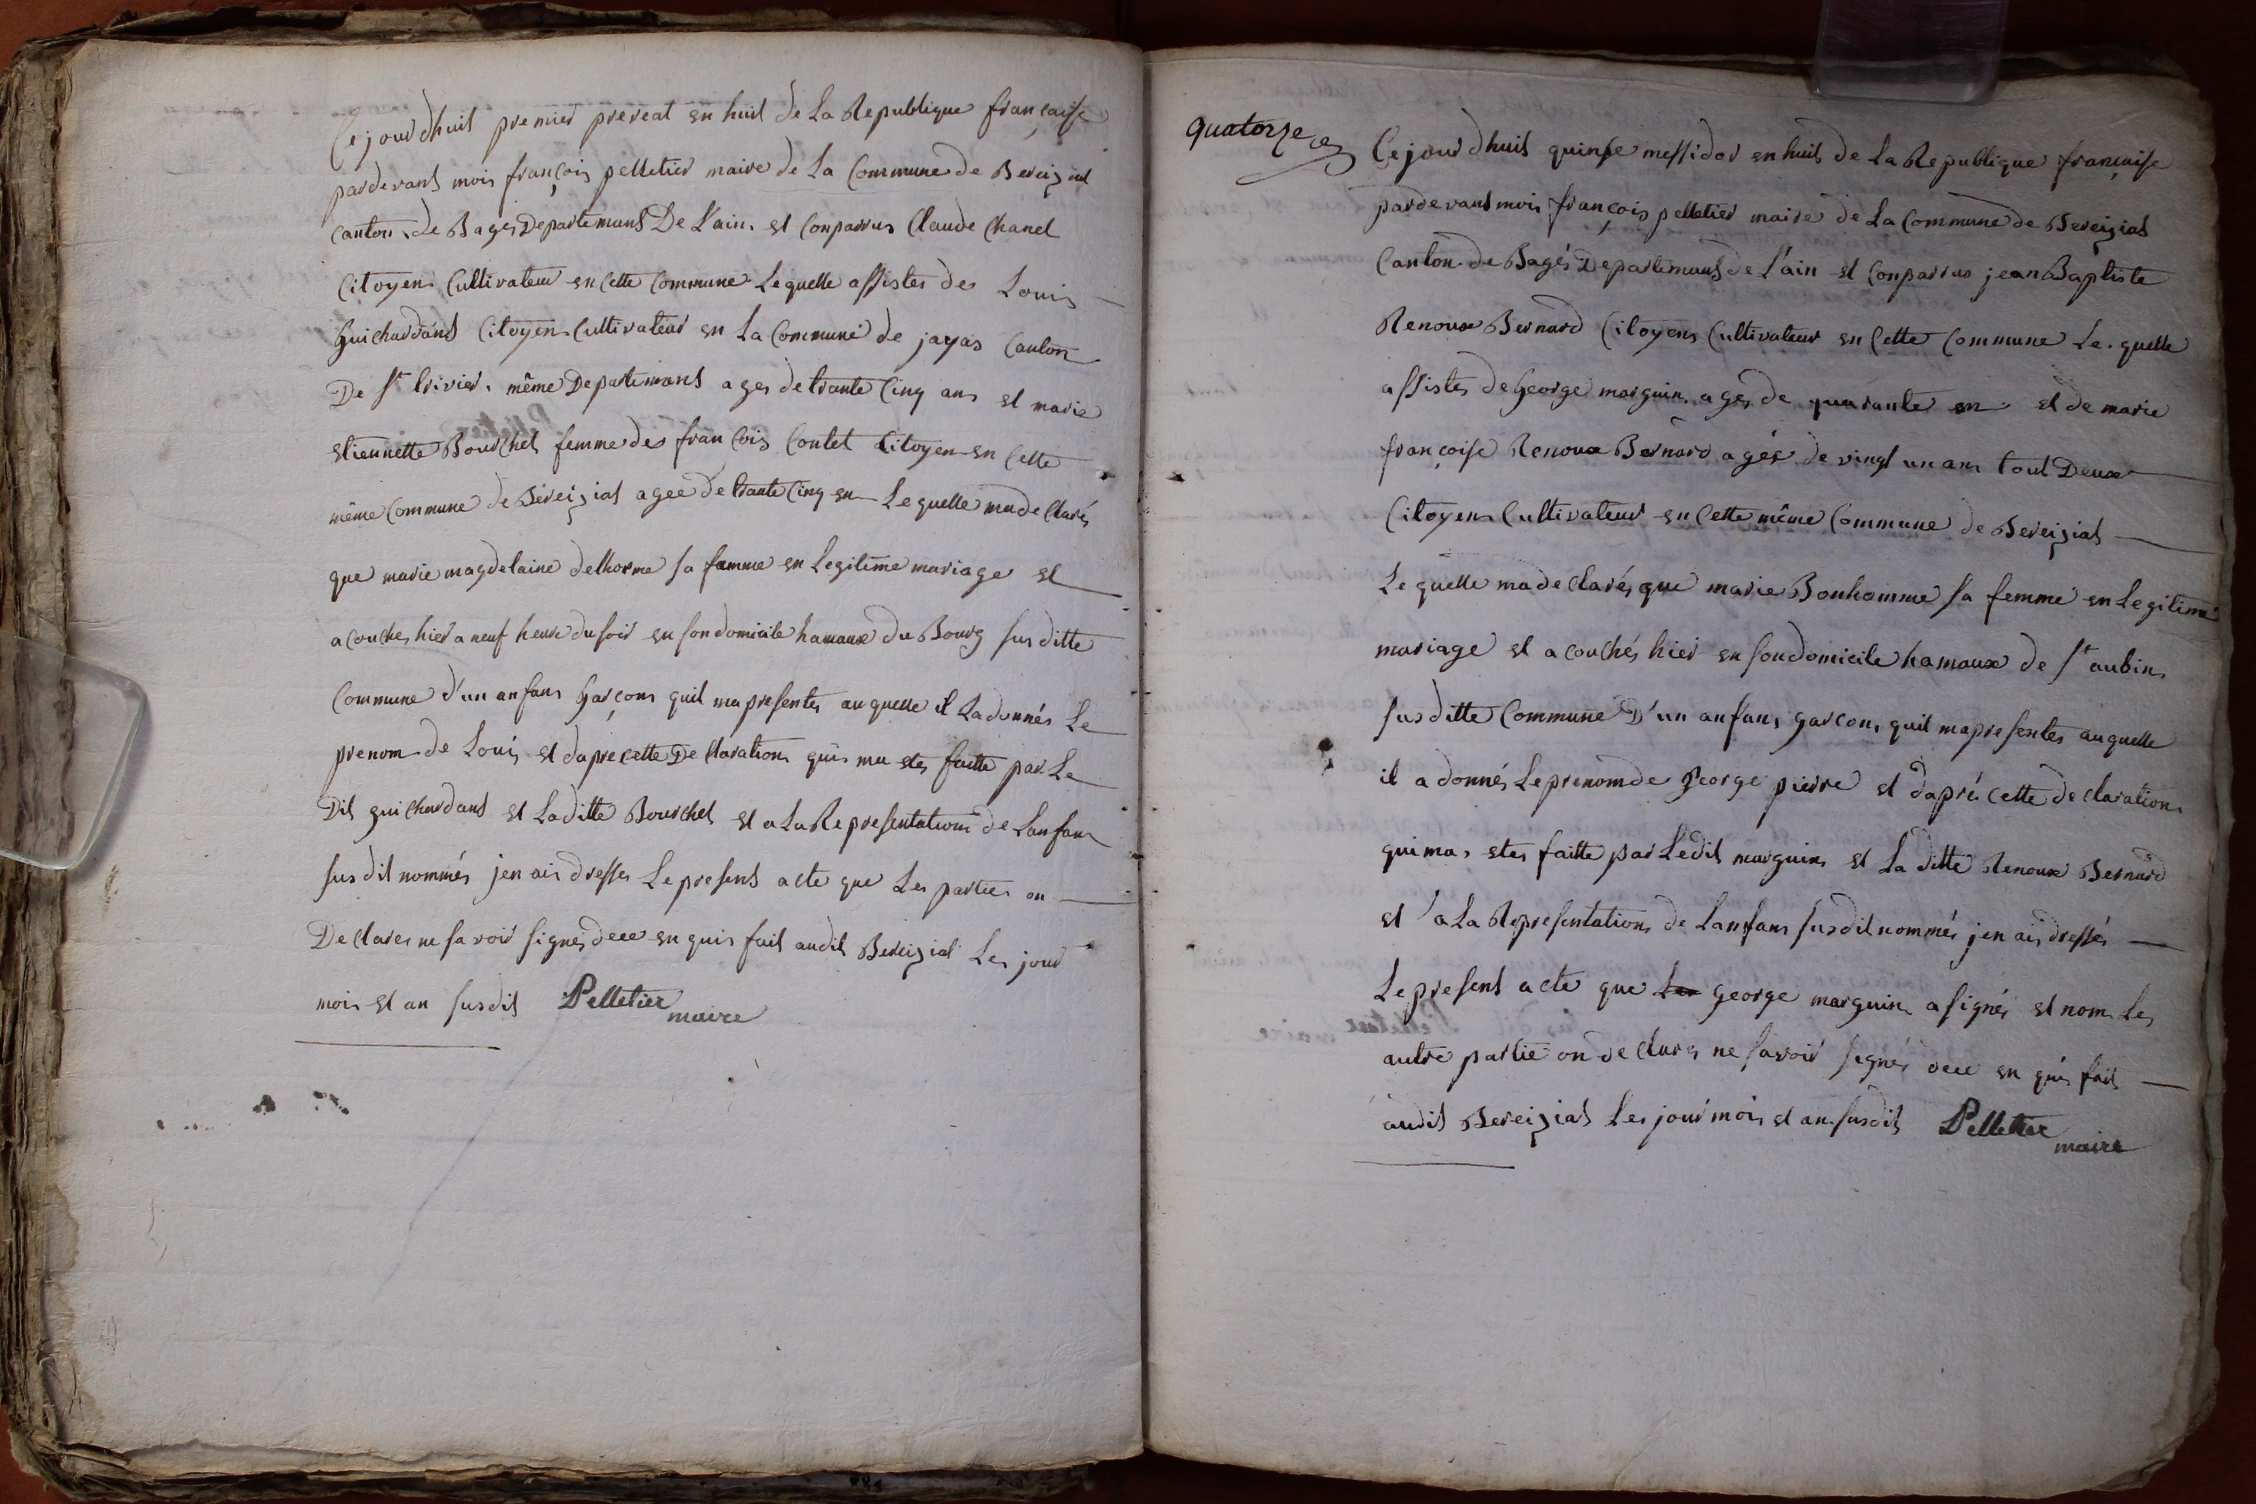 Ce jourdhuit premier prereat en huit de La Republique française
pardevant mois françois pelletier maire de La Commune de Bereiziat
canton de Bages Departemant De L'ain. et Conparrus Claude Chanel
Citoyen Cultivateur en Cette Commune Lequelle assistes des Louis
Guichardant Citoyen Cultivateur en La Commune de jayas Canton
De St trivier. même Departemant ages de trante Cinq ans et marie
etiennette Bourchet femme des françois Contet Citoyen en Cette
même Commune de Béreiziat agee de trante Cinq en Lequelle ma declarés
que marie magdelaine delhorme sa famme en Legitime mariage et
acouches hier a neuf heure du soir en son domicile hamaux du Bourg sus ditte
Commune d'un anfans Garçons quil ma presentes auquelle il La donnés Le
prenom de Loui, et dapre cette De Claration quis ma etes faitte par Le
Dit guichardant et La ditte Bourchet et a La Representations de Lanfan
susdit nommés jen ais dresses Le present acte que Les parties on
De Clares ne savoir signes dece en quis fait audit Bereiziat Les jour
mois et an susdit Pelletier maire
quatorze
Ce jourdhuit quinze messidor en huit de La Republique française
pardevant mois françois pelletier maire de La Commune de Bereiziat
Canton de Bagés Departemant de L'ain et Conparrus jean Baptiste
Renoux Bernard Citoyens Cultivateur en Cette Commune Le quelle
assistes de George marguin ages de quarante en et de marie
françoise Renoux Bernard agés de vingt un ans tout Deux
Citoyen Cultivateur en Cette même Commune de Bereiziat
Le quelle ma de Clarés que marie Bonhomme sa femme en Legitime
mariage et acouchés hier en son domicile hamaux de St aubin
sus ditte Commune D'un anfans garcons quil ma presentes auquelle
il a donnés Le prenom de George pierre et daprés cette de claration
quima etes faitte par Ledit marguin et La ditte Renoux Bernard
et a La Representations de Lanfans susdit nommés jen ais dressés
Le present acte que Les George marguin a signés et nom Les
autre partie on de Clares ne savoir signés dece en quis fait
audit Bereiziat Les jour mois et an susdit Pelletier maire